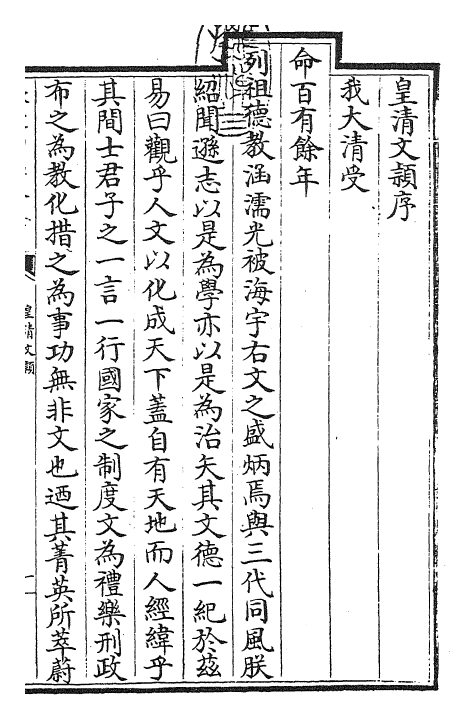 皇清文穎序
我大清受
命百有餘年
列祖德教涵濡光被海宇右文之盛炳焉與三代同風朕
紹聞遜志以是為學亦以是為治矣其文德一紀於兹
易曰觀乎人文以化成天下蓋自有天地而人經緯乎
其間士君子之一言一行國家之制度文為禮樂刑政
布之為教化措之為事功無非文也迺其菁英所萃蔚
皇清文穎